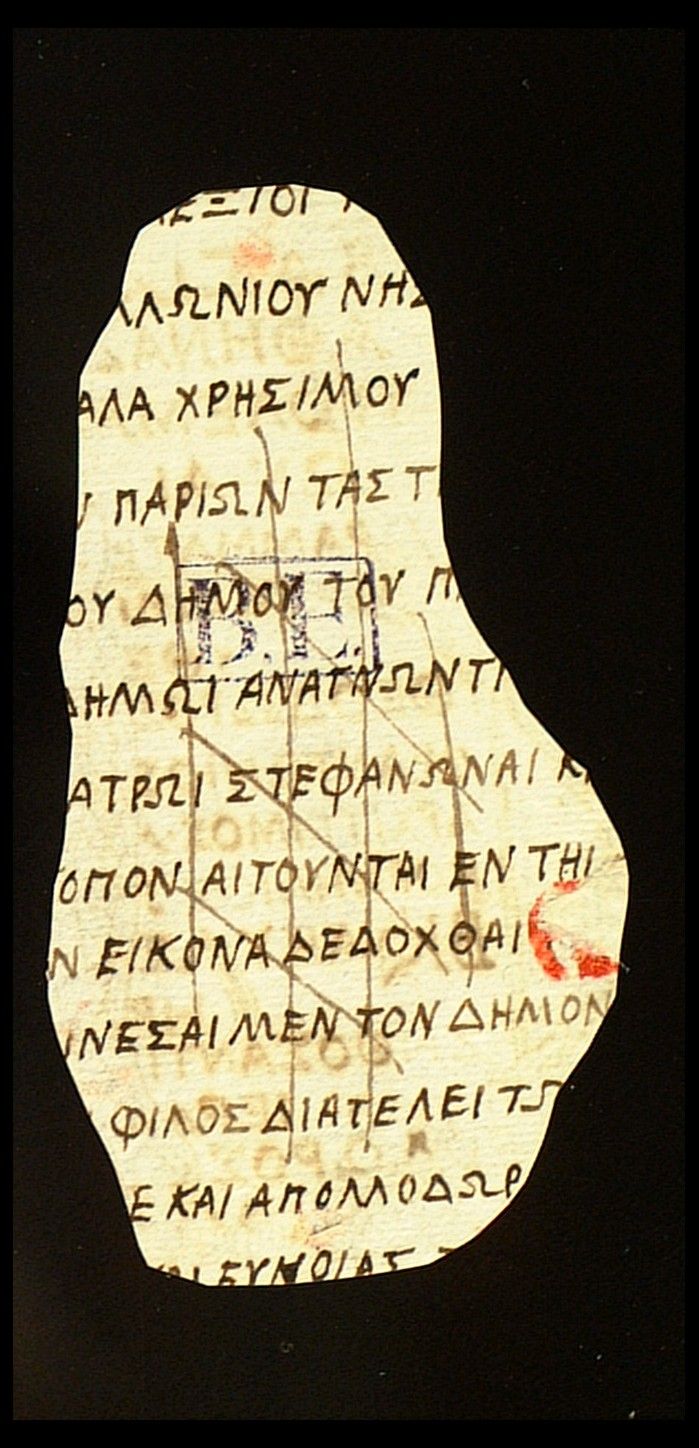 ΕΞΙΟΙ
ΛΛΩΝΙΟΥ ΝΗΣ
ΑΛΑ ΧΡΗΣΙΜΟΥ
ΠΑΡΙΩΝ ΤΑΣ Τ
ΟΥ ΔΗΜΟΥ ΤΟΥ Π
B.E.
ΔΗΜΩΙ ΑΝΑΓΝΩΝΤ
ΑΤΡΩΙ ΣΤΕΦΑΝΩΝΑΙ Κ
ΟΠΟΝ ΑΙΤΟΥΝΤΑΙ ΕΝ ΤΗΙ
Ν ΕΙΚΟΝΑ ΔΕΔΟΧΘΑΙ
ΙΝΕΣΑΙ ΜΕΝ ΤΟΝ ΔΗΜΟΝ
ΦΙΛΟΣ ΔΙΑΤΕΛΕΙ ΤΩ
Ε ΚΑΙ ΑΠΟΛΛΟΔΩΡ
ΕΥΝΟΙΑΣ